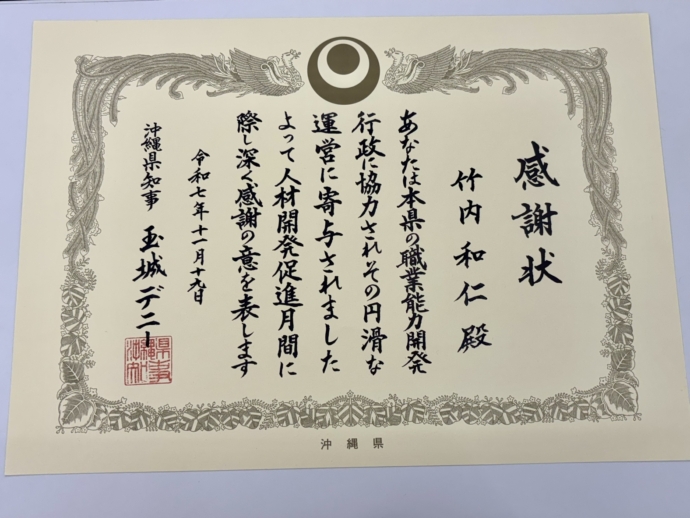 感謝状
竹内和仁殿
あなたは本県の職業能力開発
行政に協力されその円滑な
運営に寄与されました
よって人材開発促進月間に
際し深く感謝の意を表します
令和七年十一月十九日
沖縄県知事 玉城デニー
沖縄県